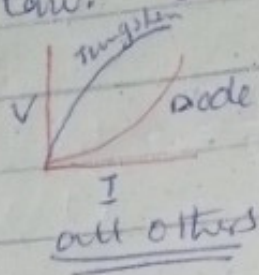 Law.
Tungsten
V
Diode
I
all others